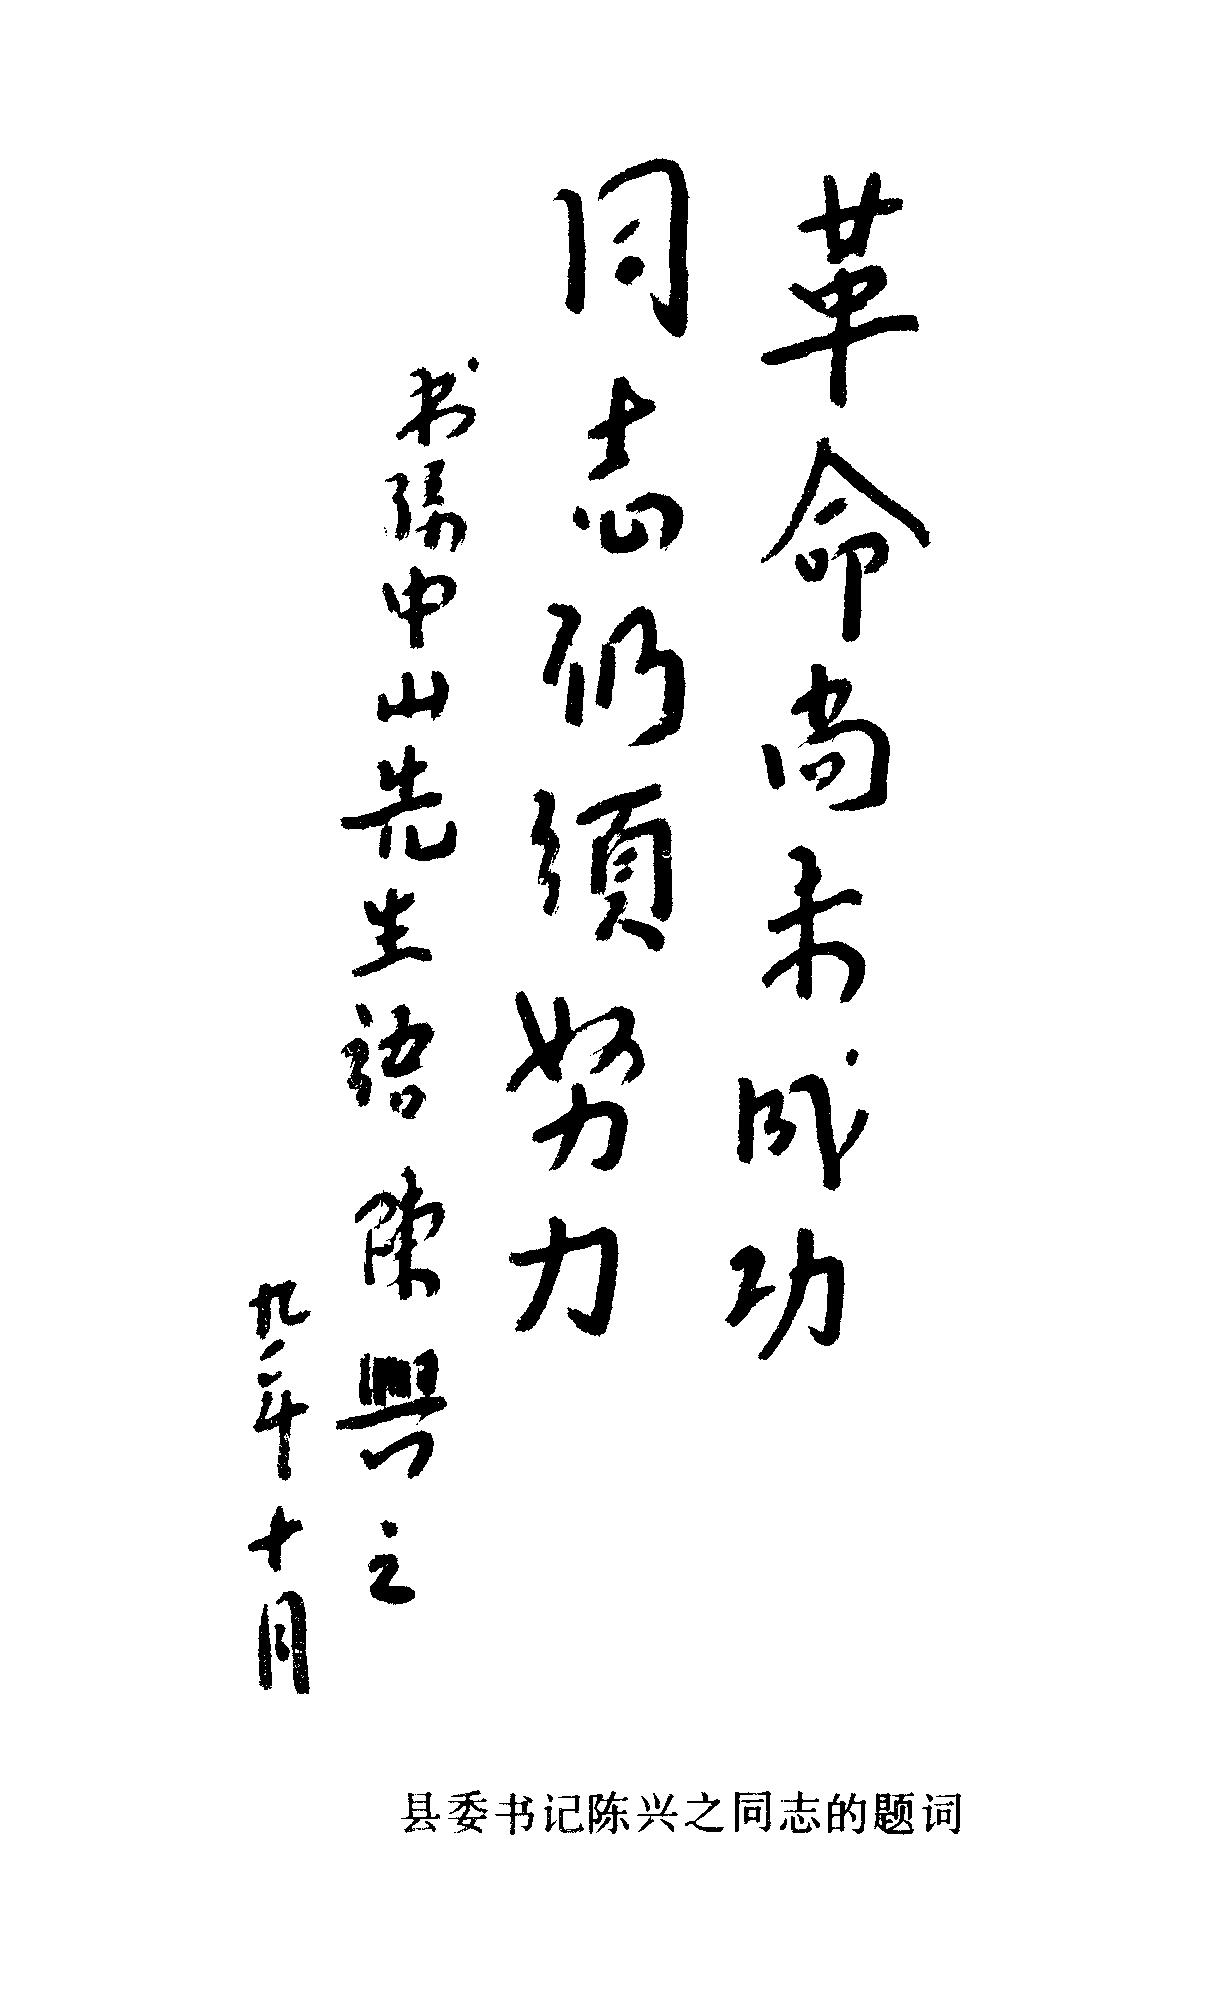 革命尚未成功
同志仍須努力
书孫中山先生语 陳興之
九二年十月
县委书记陈兴之同志的题词